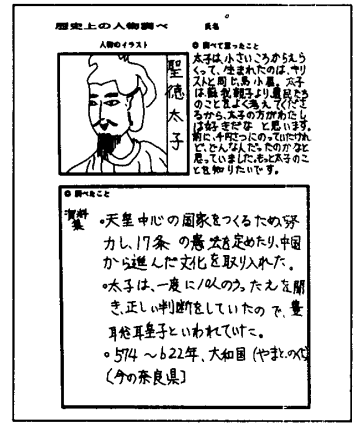 歴史上の人物調べ
氏名
人物のイラスト
聖徳太子
◎ 調べて思ったこと
太子は、小さいころからえら
くって、生まれたのは、キリ
ストと同じ、馬小屋。太子
は、蘇我親子より、農民たち
のことをよく考えてくださ
るから、太子の方がわたし
は好きだな と思います。
前に、千円さつにのっていたけれ
ど、どんな人だったのかなと
思っていました。もっと太子のこ
とを知りたいです。
◎ 調べたこと
資料集
・天皇中心の国家をつくるため、努
力し、17条の憲法を定めたり、中国
から進んだ文化を取り入れた。
・太子は、一度に10人のうったえを聞
き、正しい判断をしていたので、豊
耳聡耳皇子といわれていた。
・574〜622年、大和国(やまとのくに)
〔今の奈良県〕